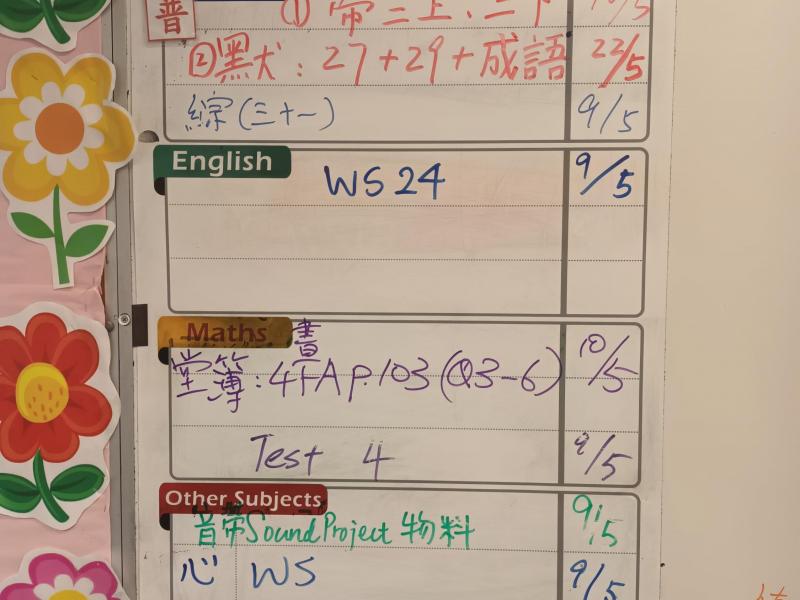 普 ① 帶二上、二下 10/5
② 默犬：27+29+成語 22/5
綜(三十一) 9/5
English
WS 24 9/5
Maths 書
堂簿：4下A P.103 (Q3-6) 10/5
Test 4 9/5
Other Subjects
音帶Sound Project 物料 9/5
心 WS 9/5